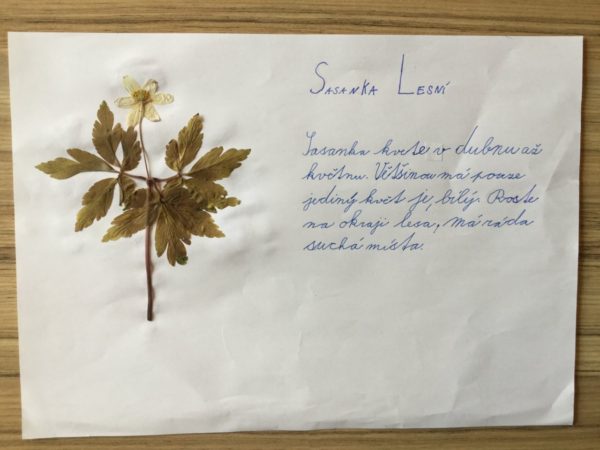 Sasanka Lesní
Sasanka kvete v dubnu až
květnu. Většinou má pouze
jediný květ je, bílý. Roste
na okraji lesa, má ráda
suchá místa.